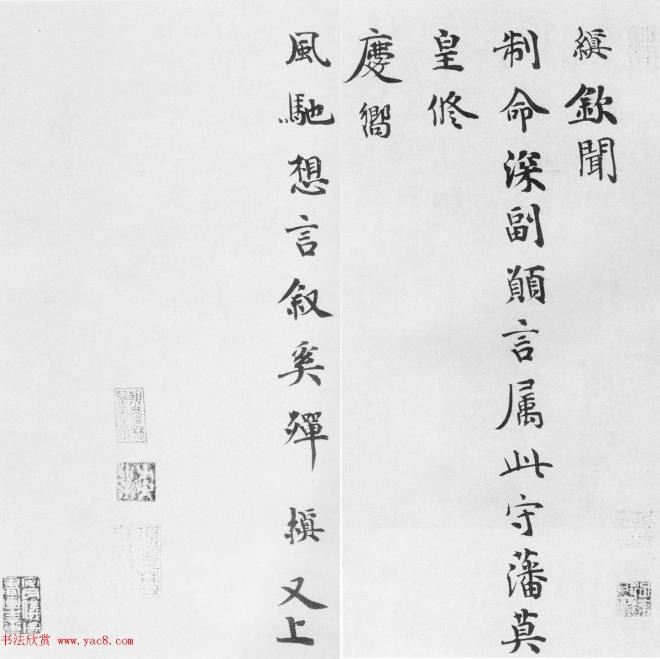 縝欽聞
制命深副願言属此守藩莫
皇修
慶嚮
風馳想言叙奚殫 縝又上
书法欣赏 www.yac8.com